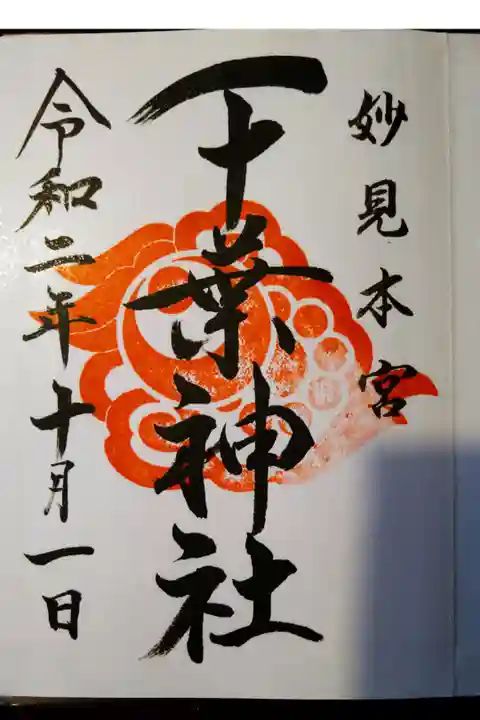 妙見本宮
千葉神社
令和二年十月一日